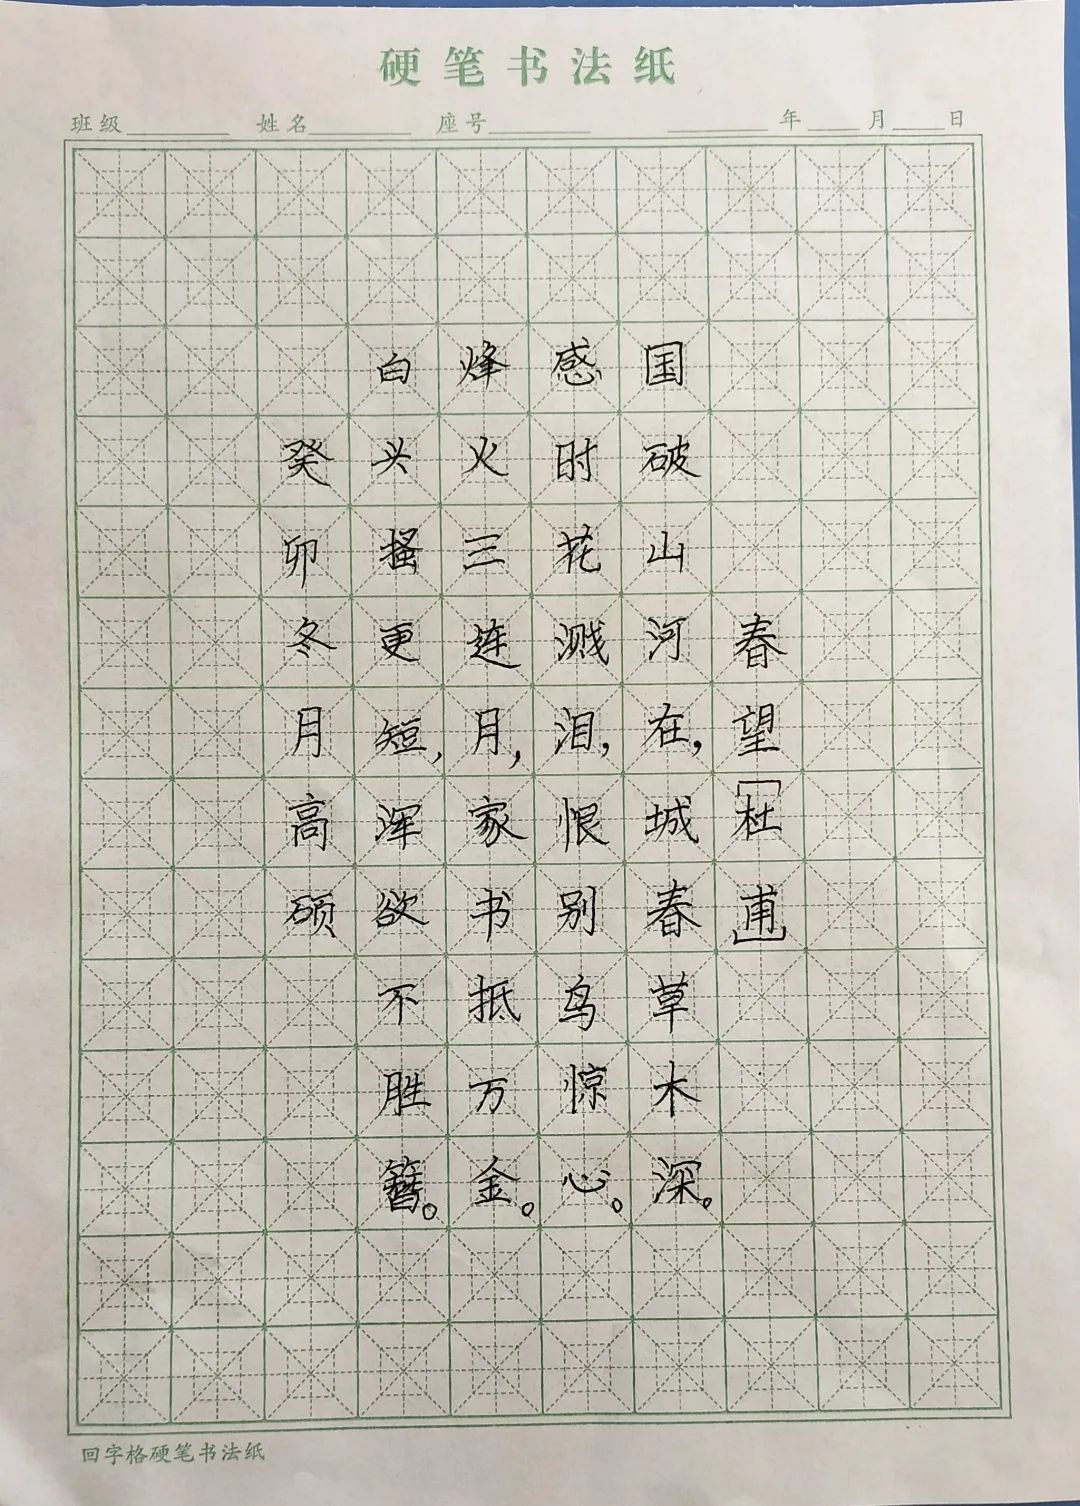 硬笔书法纸
班级 姓名 座号 年 月 日
春望「杜甫」
国破山河在，城春草木深。
感时花溅泪，恨别鸟惊心。
烽火三连月，家书抵万金。
白头搔更短，浑欲不胜簪。
癸卯冬月高硕
回字格硬笔书法纸